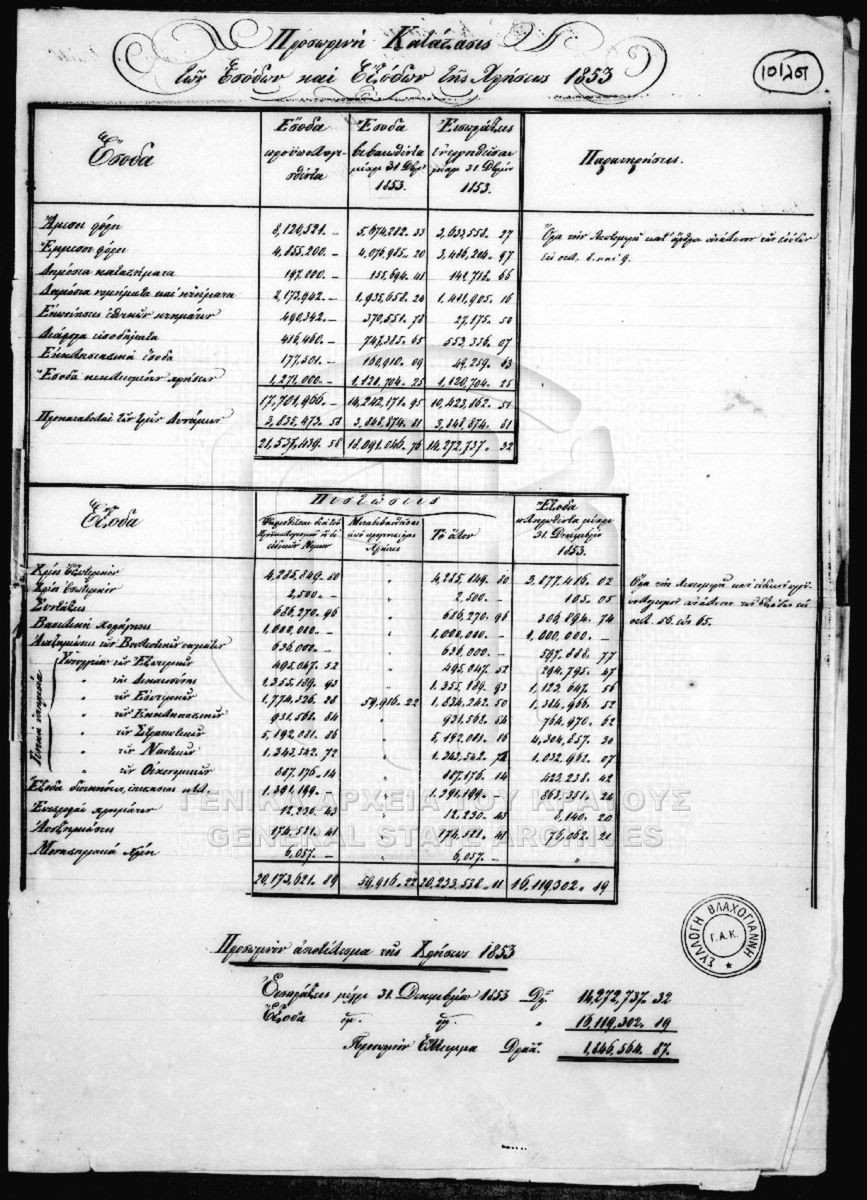 Προσωρινὴ Κατάστασις
τῶν Ἐσόδων καὶ Ἐξόδων τῆς Χρήσεως 1853
101251
Ἔσοδα
Ἔσοδα προϋπολογισθέντα
Ἔσοδα βεβαιωθέντα μέχρι 31 Δεβρ. 1853.
Εἰσπράξεις ἐνεργηθεῖσαι μέχρι 31 Δεβρίου 1853.
Παρατηρήσεις.
Ἄμεσοι φόροι 8,120,521. – 5,674,282. 33 3,633,558. 27
Ἔμμεσοι φόροι 4,855,200. – 4,076,985. 20 3,486,204. 97
Δημόσια καταστήματα 197,000. – 151,694. 41 141,712. 66
Δημόσια νομήματα καὶ κτήματα 2,173,942. – 1,935,658. 24 1,411,905. 16
Ἐκποιήσεις ἐθνικῶν κτημάτων 490,342. – 370,551. 78 27,175. 50
Διάφορα εἰσοδήματα 416,460. – 747,385. 65 553,336. 07
Ἐκκλησιαστικὰ ἔσοδα 177,501. – 160,910. 09 49,259. 63
Ἔσοδα κεκλεισμένων χρήσεων 1,271,000. – 1,120,704. 25 1,120,704. 25
17,701,966. – 14,242,171. 95 10,423,862. 51
Προκαταβολαὶ τῶν τριῶν Δυνάμεων 3,835,473. 58 3,848,874. 81 3,848,874. 81
21,537,439. 58 18,091,046. 76 14,272,737. 32
Ὅρα τὴν λεπτομερῆ κατ' ἄρθρα
σελ. 8. καὶ 9.
Ἔξοδα
Πιστώσεις
Τὸ ὅλον
Ἔξοδα πληρωθέντα μέχρι 31. Δεκεμβρίου 1853.
Χρέος ἐξωτερικὸν 4,285,849. 80 " 4,285,849. 80 3,877,416. 02
Χρέος ἐσωτερικὸν 2,500. – " 2,500. – 105. 05
Συντάξεις 686,270. 96 " 686,270. 96 306,894. 74
Βασιλικὴ χορήγησις 1,000,000. – " 1,000,000. – 1,000,000. –
Ἀποζημιώσεις τῶν Βουλευτικῶν σωμάτων 636,000. – " 636,000. – 597,888. 77
Γενικὴ ὑπηρεσία
Ὑπουργεῖον τῶν Ἐξωτερικῶν 495,047. 52 " 495,047. 52 294,795. 47
" τῆς Δικαιοσύνης 1,355,189. 93 " 1,355,189. 93 1,123,647. 56
" τῶν Ἐσωτερικῶν 1,774,326. 28 59,916. 22 1,834,242. 50 1,384,966. 52
" τῶν Ἐκκλησιαστικῶν 931,568. 64 " 931,568. 64 764,970. 62
" τῶν Στρατιωτικῶν 5,192,081. 86 " 5,192,081. 86 4,304,857. 30
" τῶν Ναυτικῶν 1,343,542. 72 " 1,343,542. 72 1,032,962. 07
" τῶν Οἰκονομικῶν 887,176. 14 " 887,176. 14 423,238. 42
Ἔξοδα διοικήσεως, εἰσπράξεως κτλ. 1,391,199. – " 1,391,199. – 863,351. 24
Ἐπιστροφαὶ χρημάτων 12,230. 43 " 12,230. 43 8,140. 20
Ἀποζημιώσεις 174,581. 41 " 174,581. 41 76,062. 21
Μοναστηριακὰ χρέη 6,057. – " 6,057. – "
20,173,621. 89 59,916. 22 20,233,538. 11 16,119,302. 19
σελ. 56. ἕως 65.
ΓΕΝΙΚΑ ΑΡΧΕΙΑ ΤΟΥ ΚΡΑΤΟΥΣ
GENERAL STATE ARCHIVES
ΣΥΛΛΟΓΗ ΒΛΑΧΟΓΙΑΝΝΗ
Γ.Α.Κ.
Προσωρινὸν ἀποτέλεσμα τῆς Χρήσεως 1853
Εἰσπράξεις μέχρι 31. Δεκεμβρίου 1853 Δρ. 14,272,737. 32
Ἔξοδα ὁμ. ὁμ. " 16,119,302. 19
Προσωρινὸν Ἔλλειμμα Δραχ. 1,846,564. 87.